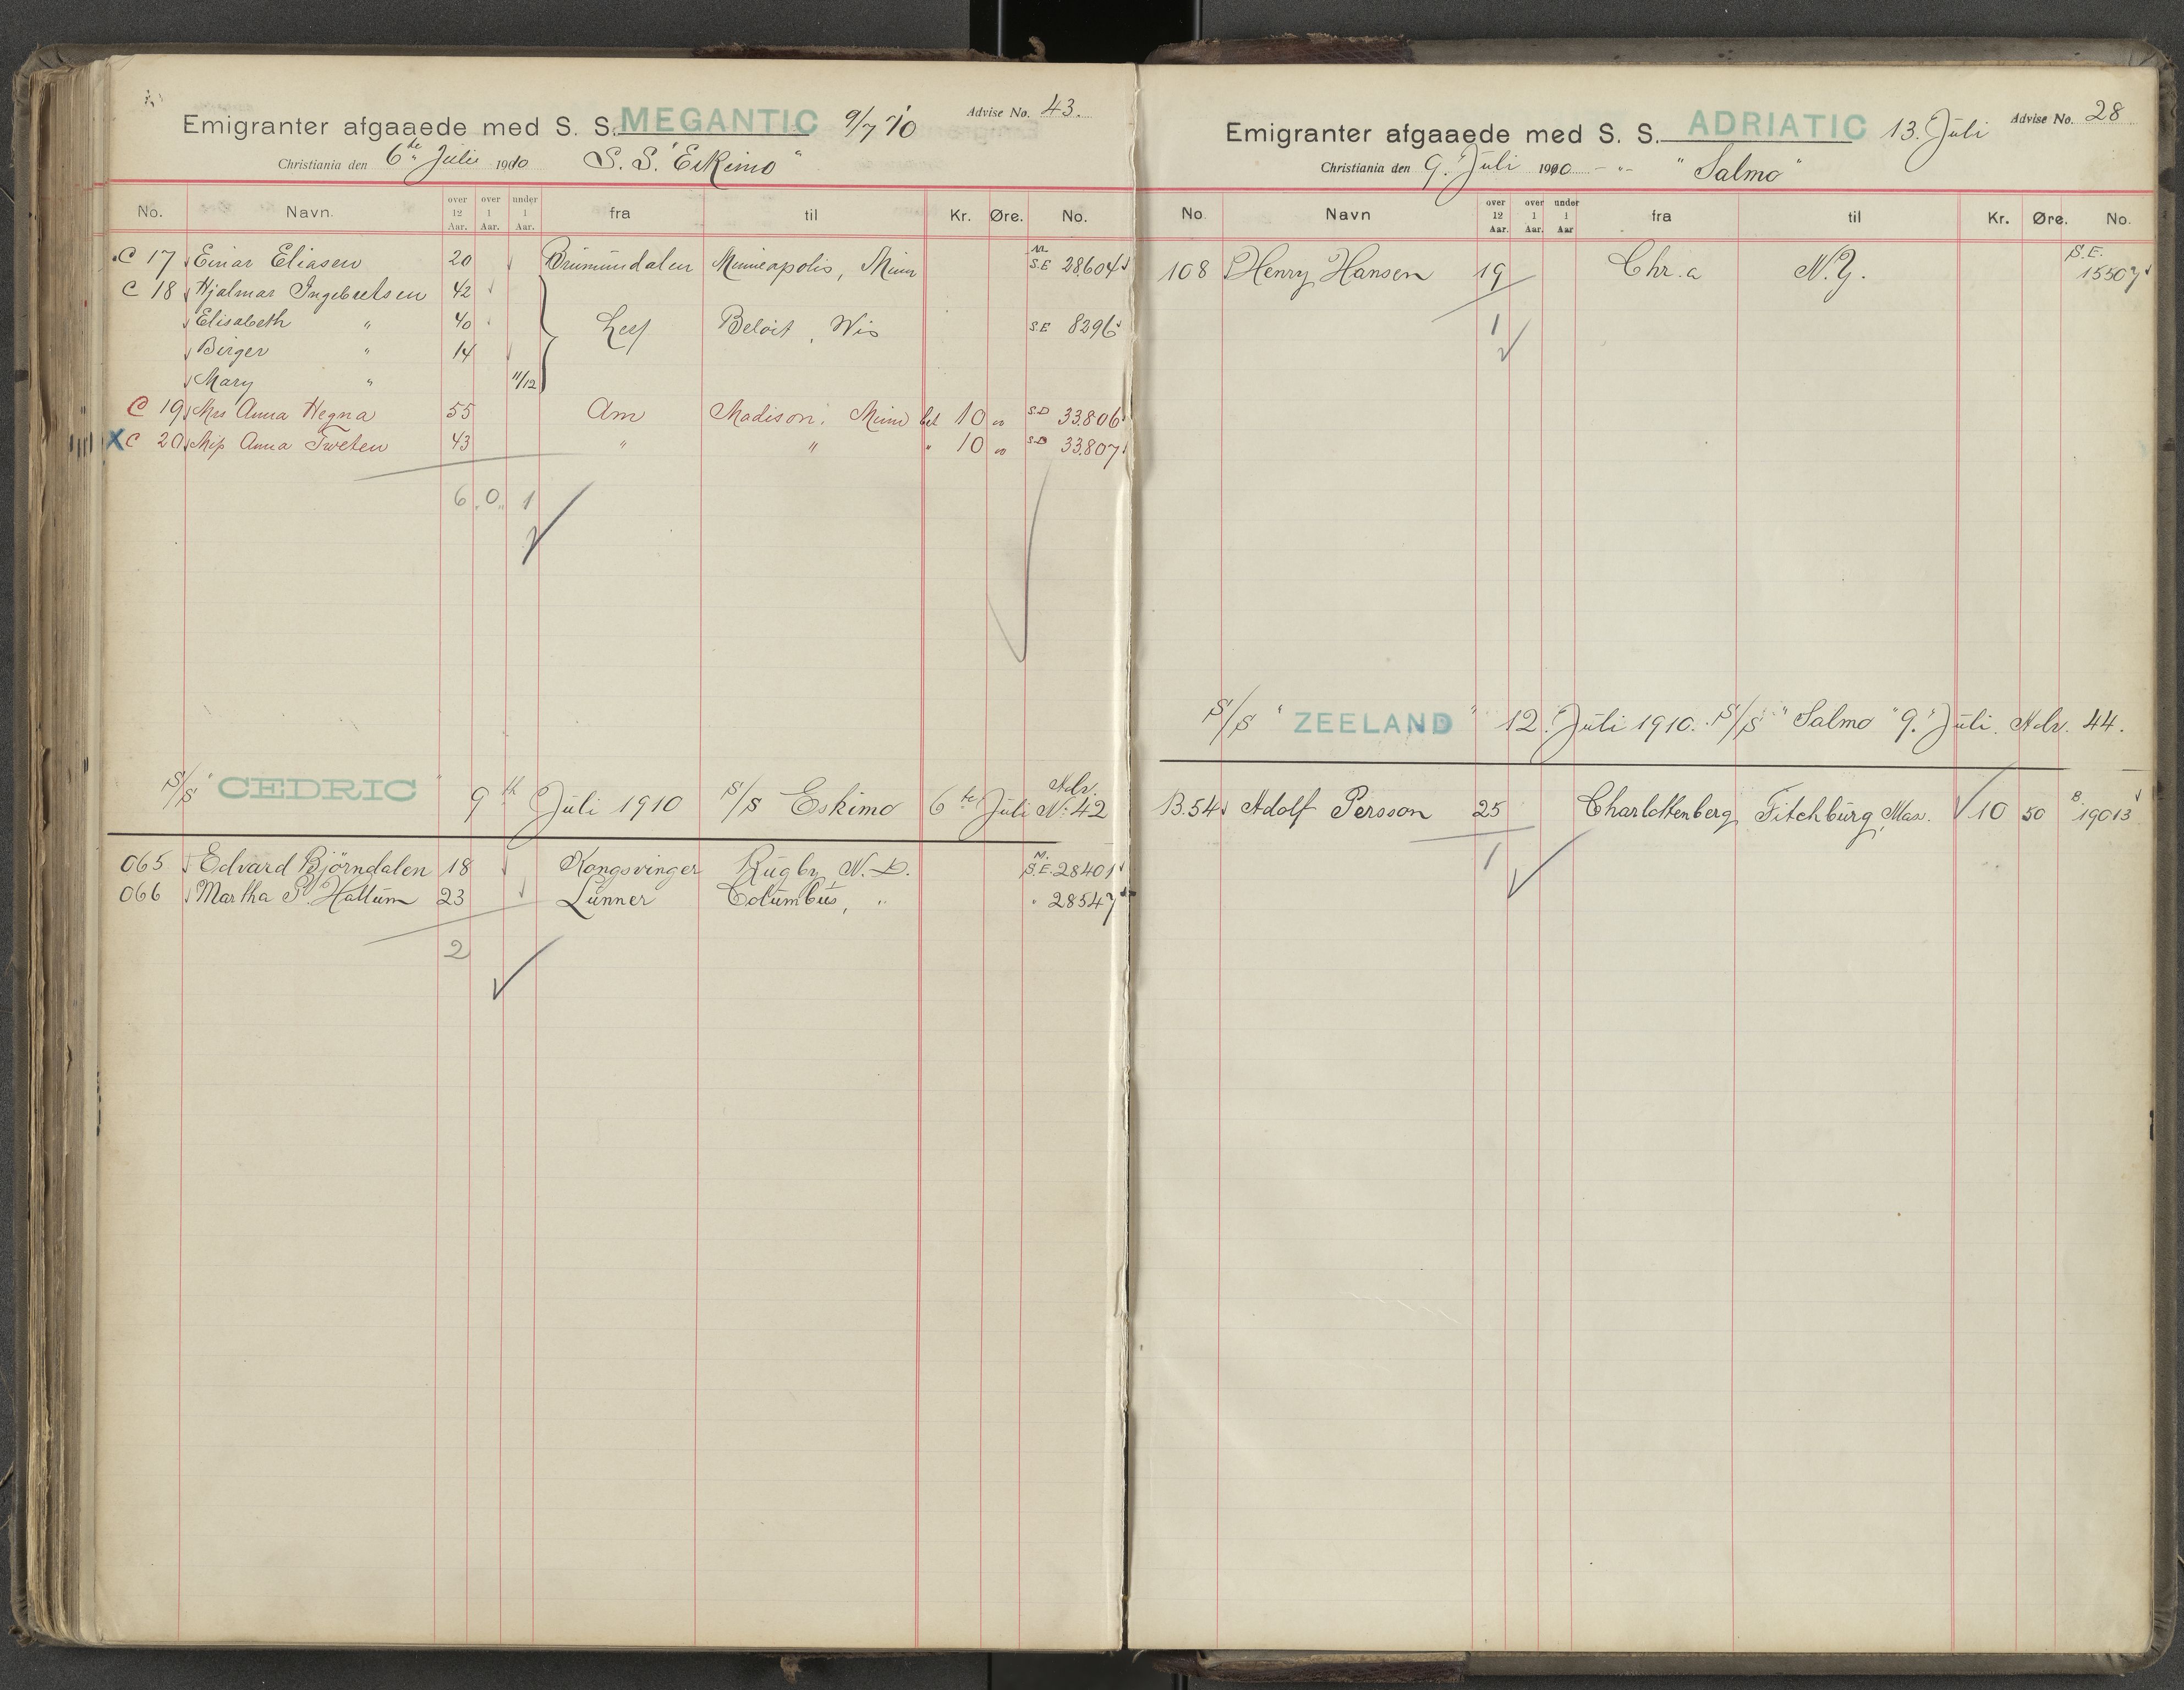 Emigranter afgaaede med S. S. MEGANTIC 9/7 '10 Advise No. 43.
Christiania den 6te Juli 1910 S. S. "Eskimo"
No. Navn. over 12 Aar. over 1 Aar. under 1 Aar. fra til Kr. Øre. No.
C 17 Einar Eliasen 20 Brumunddalen Minneapolis, Minn M. S.E 28604
C 18 Hjalmar Ingebretsen 42
Elisabeth " 40 Beloit, Wis S.E 8296
Birger " 14
Mary " 11/12
C 19 Mrs Anna Hegna 55 Am Madison, Minn bet 10 " S.D 33806
X C 20 Miss Anna Tweten 43 " " " 10 " S.D 33807
6 " 0 " 1
S/S "CEDRIC" 9th Juli 1910 S/S Eskimo 6te Juli Adv. No. 42
065 Edvard Björndalen 18 Kongsvinger Rugby, N. D. M. S.E. 28401
066 Martha P. Hallum 23 Lunner Columbus, " " 28547
2
Emigranter afgaaede med S. S. ADRIATIC 13. Juli Advise No. 28
Christiania den 9. Juli 1910 - " - "Salmo"
No. Navn over 12 Aar. over 1 Aar. under 1 Aar fra til Kr. Øre. No.
108 Henry Hansen 19 Chr.a N.Y. S.E. 15507
1
S/S "ZEELAND" 12. Juli 1910. S/S "Salmo" 9. Juli. Adv. 44.
B.54 Adolf Persson 25 Charlottenberg Fitchburg, Mas. 10 50 B. 19013
1